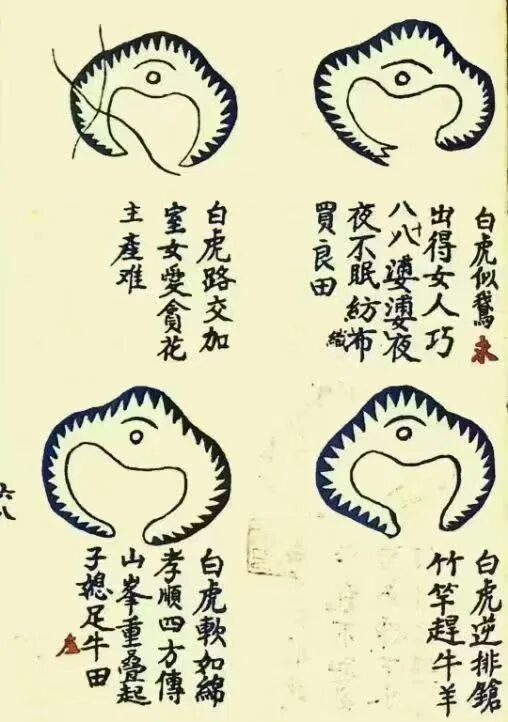 白虎似鵞
出得女人巧
八十八婆婆夜
夜不眠紡織布
買良田
白虎路交加
室女愛貪花
主產难
白虎逆排鎗
竹竿趕牛羊
白虎軟如綿
孝順四方傳
山峯重疊起
子媳足牛田
六八